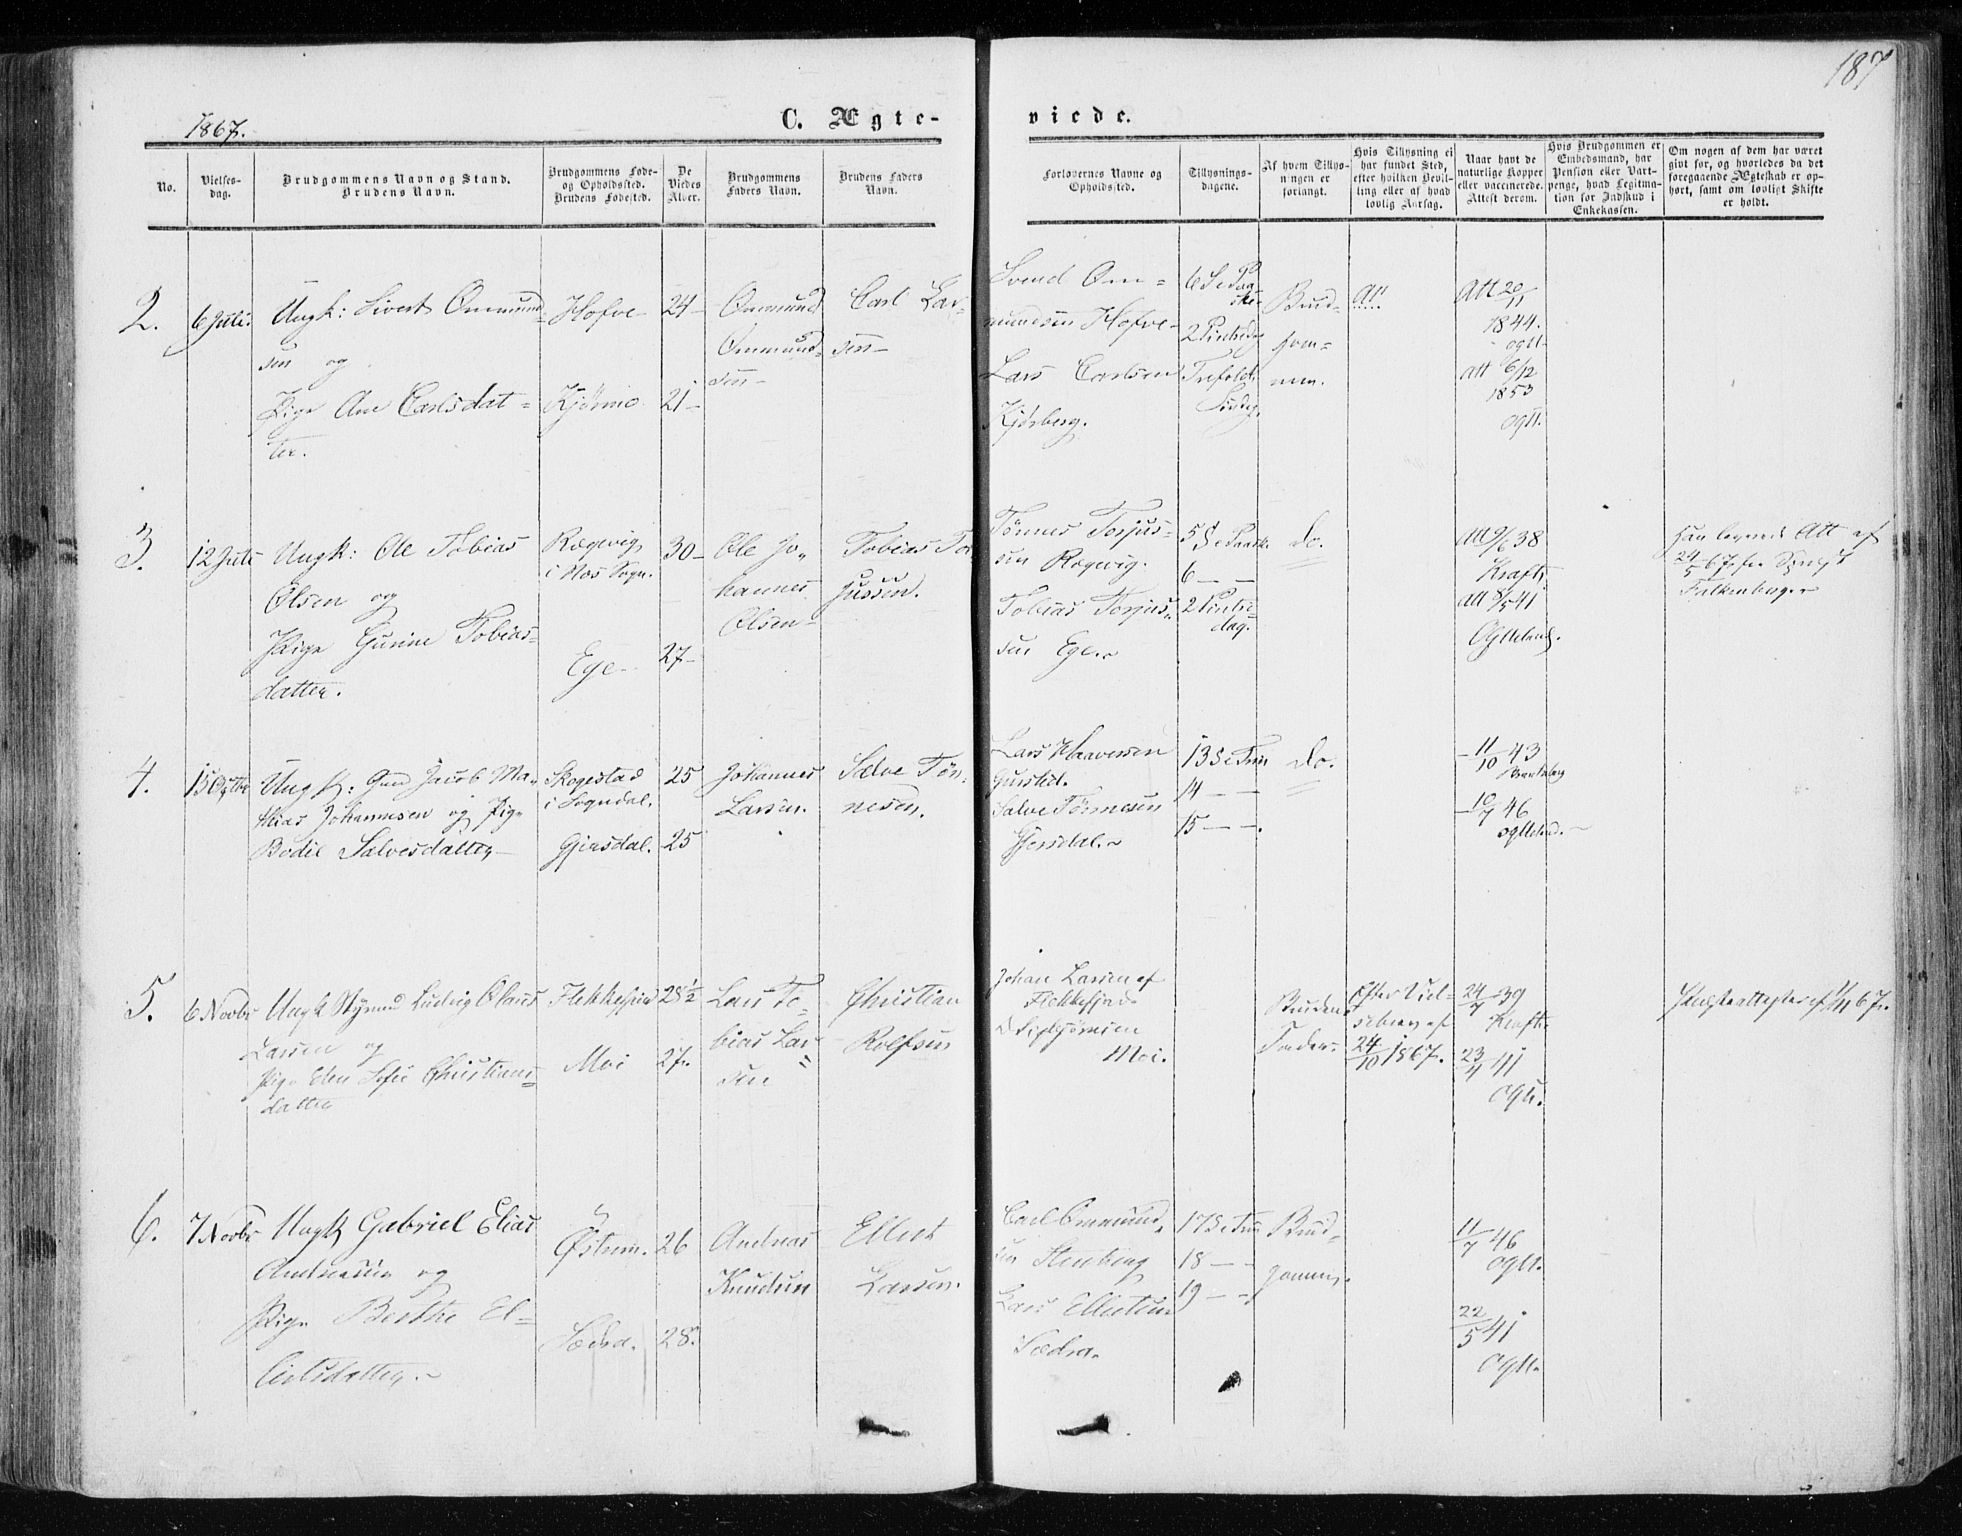 187
1867.
C. Ægte-
viede.
No.
Vielses-
dag.
Brudgommens Navn og Stand.
Brudens Navn.
Brudgommens Føde-
og Opholdssted.
Brudens Fødested.
De
Viedes
Alder.
Brudgommens
Faders Navn.
Brudens Faders
Navn.
Forlovernes Navne og
Opholdssted.
Tillysnings-
dagene.
Af hvem Tillys-
ningen er
forlangt.
Hvis Tillysning ei
har fundet Sted,
efter hvilken Bevil-
ling eller af hvad
lovlig Aarsag.
Naar havt de
naturlige Kopper
eller vaccinerede.
Attest derom.
Hvis Brudgommen er
Embedsmand, har
Pension eller Vart-
penge, hvad Legitima-
tion for Indskud i
Enkekassen.
Om nogen af dem har været
givt før, og hvorledes da det
foregaaende Ægteskab er op-
hørt, samt om lovligt Skifte
er holdt.
2.
6 Juli.
Ungk: Sivert Ommund-
sen og
Pige Ane Carlsdat-
ter.
Hofve
24-
21-
Ommund
Ommund-
sen-
Carl Lar-
sen-
Svend Om-
mundsen Hofve-
Lars Carlsen
Kjørberg.
2 Pintsedg
Brud-
gom-
men.
Att 20/11
1844.
Ogtl-
Att 6/12
1853
Ogtl.
3.
12 Juli
Ungk: Ole Tobias
Olsen og
Pige Gurine Tobias-
datter.
Rægevig
i Næs Sogn.
Ege-
30-
27-
Ole Jo-
hannes
Olsen-
Tobias Tor-
jussen.
Tønnes Torjus-
sen Rægevig.
Tobias Torjus-
sen Ege.
6 - -
2 Pintse-
dag.
Do.
Att 9/6 38
Kraft,
Att 8/5 41
Ogtteland.
Han leverede Att af
24/5 67 fra
Falkenberg.
4.
Ungk: Gund Jacob Ma-
thias Johannesen og Pige
Bodil Salvesdatter
Skogestad
i Sogndal.
Gjersdal.
25
25
Johannes
Larsen.
Salve Tøn-
nesen.
Lars
Salve Tønnesen
Gjersdal.
13 S e Trin
14 - -
15 - -.
Do.
- 11/10 43
- 10/7 46
Ogtteland.
5.
6 Novbr
Ungk Ludvig Olaus
Larsen og
Pige Elen Sofie Christians-
datter
Flekkefjord
Moi
28 1/2
27.
Lars To-
bias Lar-
sen
Christian
Rolfsen
Johan Larsen af
Flekkefjord
Sigbjørnsen
Moi.
Brudens
Fader.
Efter Viel-
sebrev af
24/10 1867.
24/7 39
Kraft.
23/11 41
Ogtl.
6.
7 Novbr
Ungk Gabriel Elias
Andreasen og
Pige Berthe El-
Østrem.
26
28.
Andreas
Knudsen
Ellert
Larsen.
Carl Ommund-
sen Stenberg
Lars Ellertsen
17 S e Trin
18 - -
19 - -
Brud-
gommen.
11/7 46
Ogtl.
22/5 41
Ogtl.